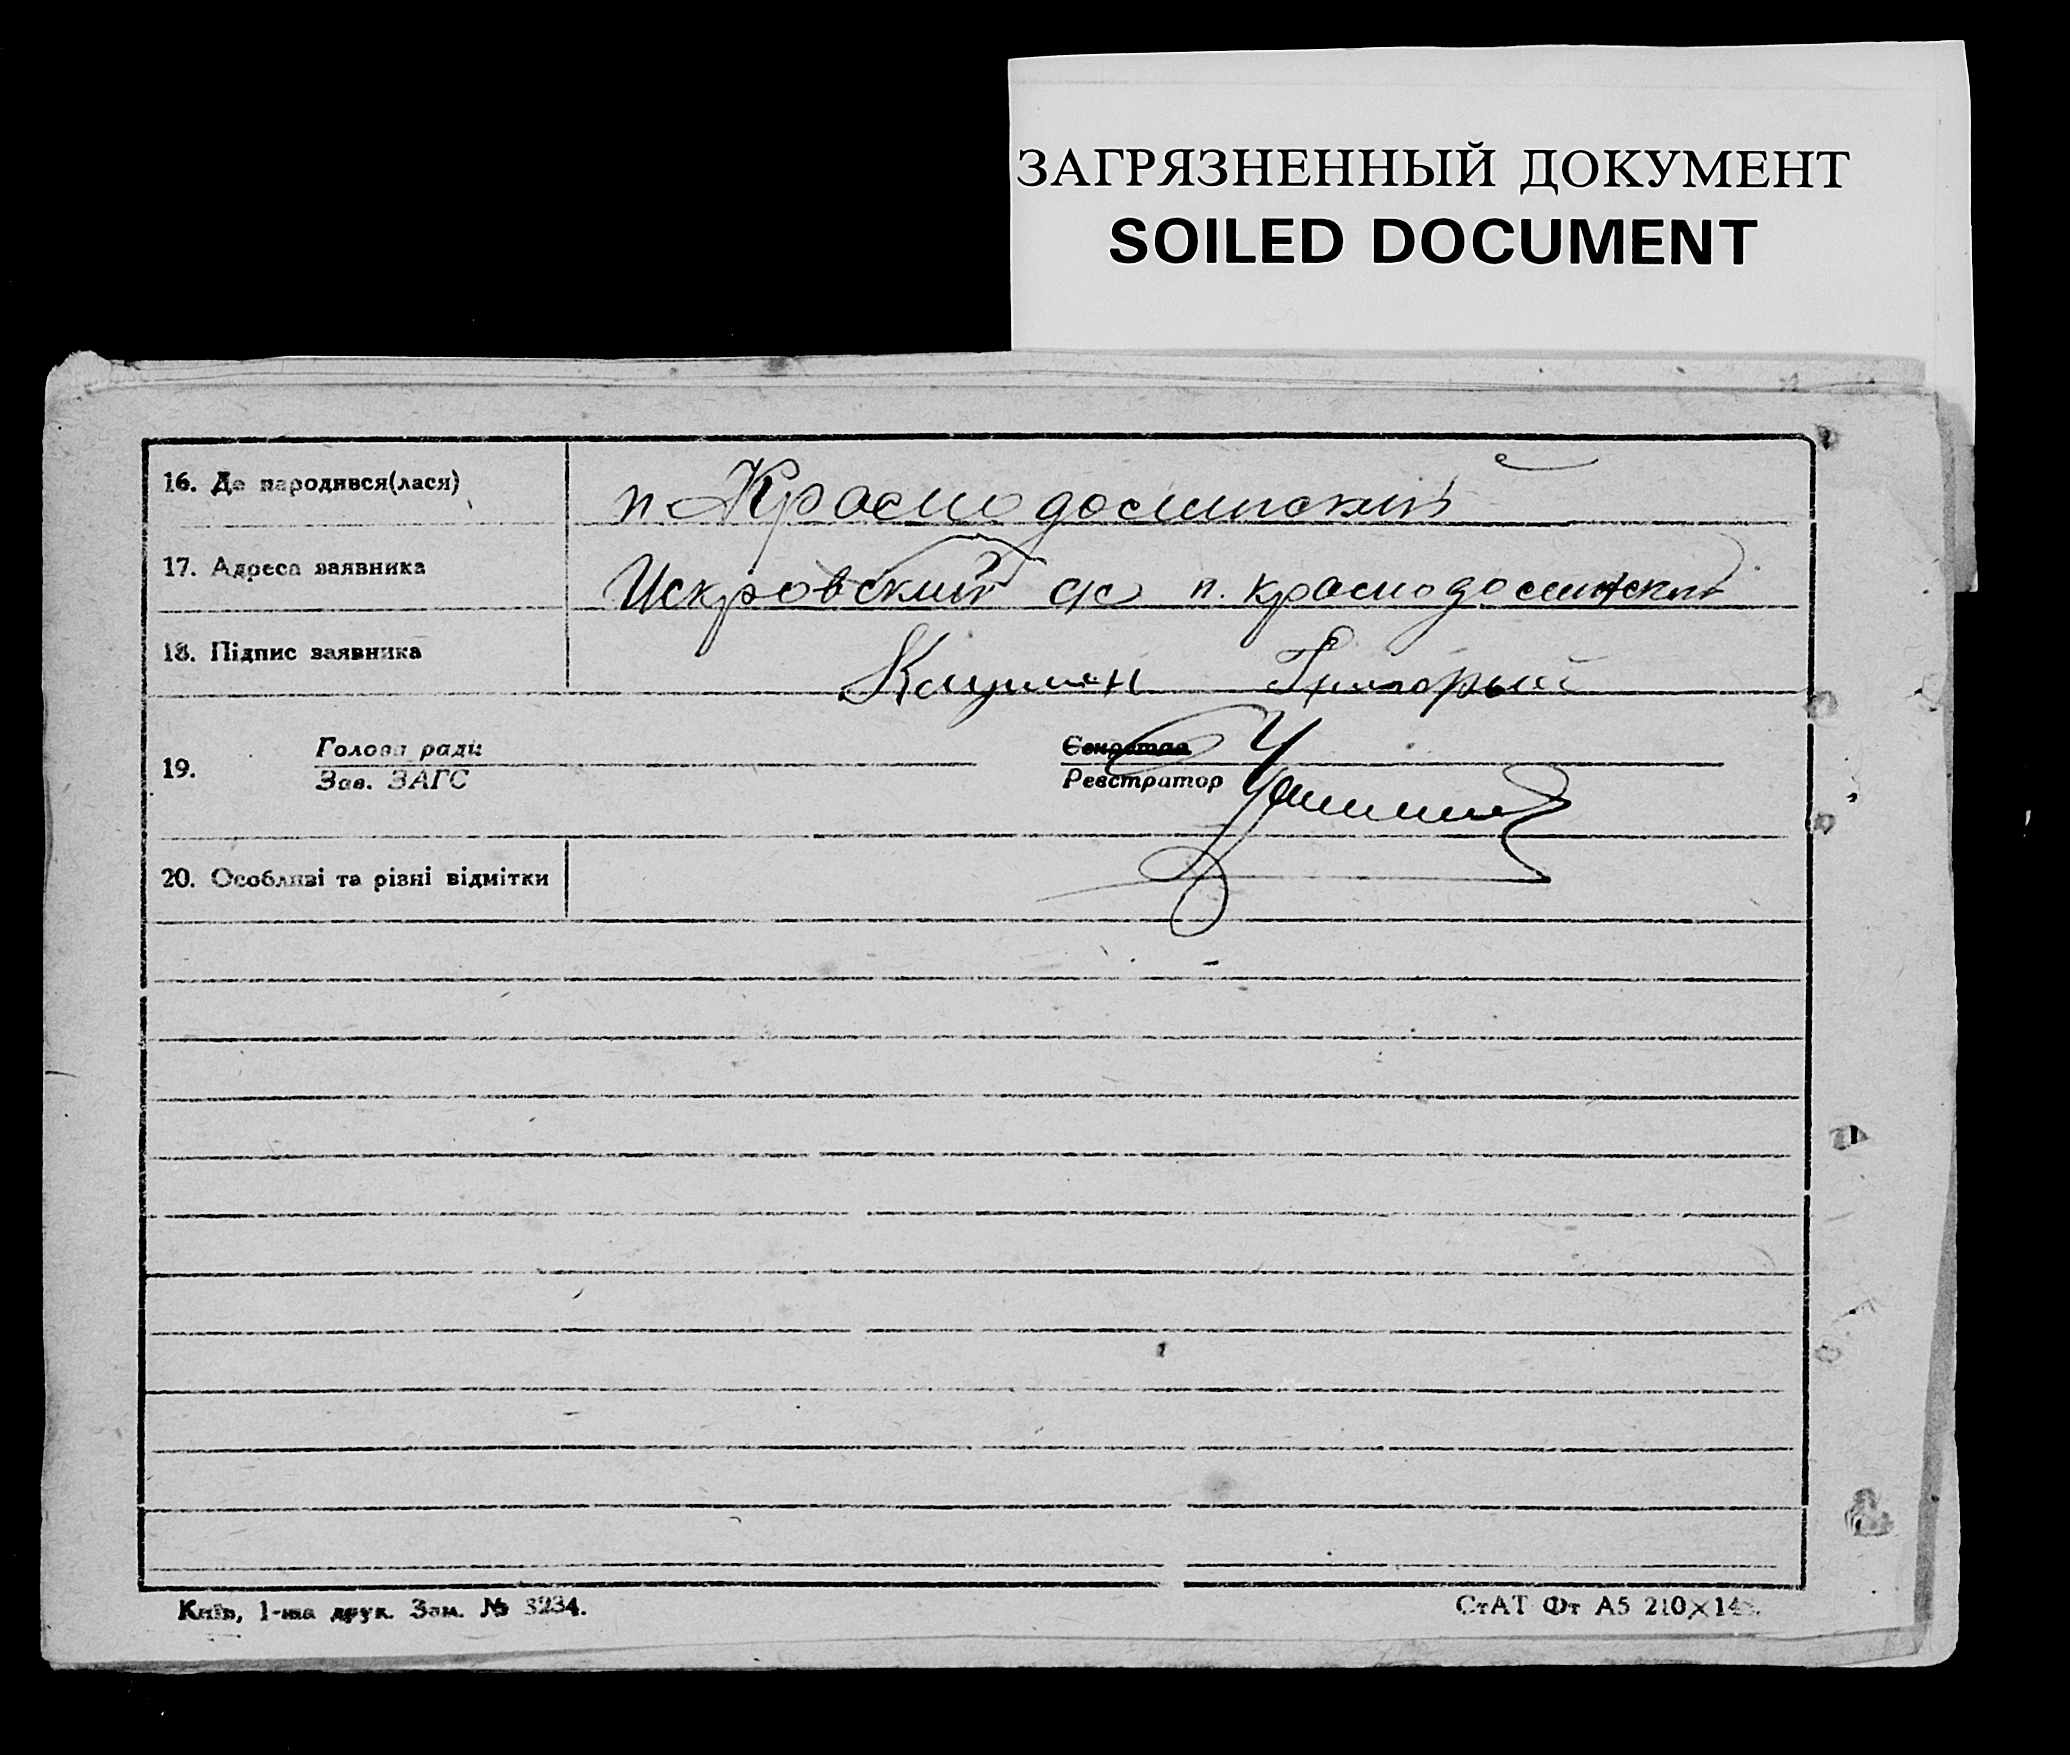 ЗАГРЯЗНЕННЫЙ ДОКУМЕНТ
SOILED DOCUMENT
16. Де народився(лася) п. Краснодолинский
17. Адреса заявника Искровский с/с п. краснодолинский
18. Підпис заявника Григорый
19. Голова ради Секретар
Зав. ЗАГС Реєстратор
20. Особливі та різні відмітки
Київ, 1-ша друк. Зам. № 3234.
СтАТ Фт А5 210×148.